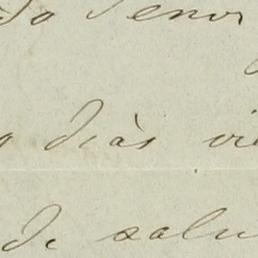 do Senor
o diàs vi
de salu